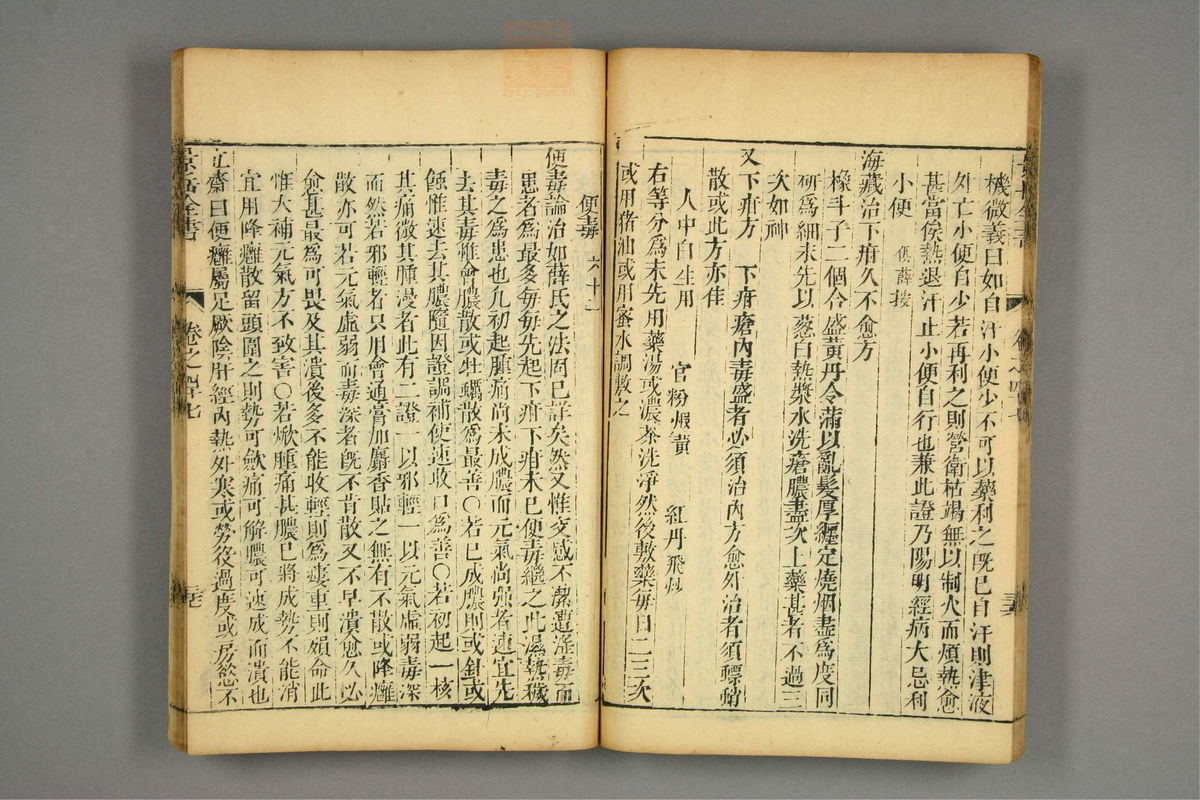 機微義曰如自汗小便少不可以藥利之既已自汗則津液
外亡小便自少若再利之則營衛枯竭無以制火而煩熱愈
甚當俟熱退汗止小便自行也兼此證乃陽明經病大忌利
小便 俱薛按
海藏治下疳久不愈方
橡斗子二個合盛黃丹令滿以亂髮厚纏定燒烟盡為度同
研為細末先以葱白熱漿水洗瘡膿盡次上藥甚者不過三
次如神
又下疳方 下疳瘡內毒盛者必須治內方愈外治者須螵蛸
散或此方亦佳
人中白生用 官粉煅黃 紅丹飛炒
右等分為末先用藥湯或濃茶洗淨然後敷藥每日二三次
或用猪油或用蜜水調敷之
便毒 六十一
便毒論治如薛氏之法固已詳矣然又惟交感不潔遭淫毒而
患者為最多每每先起下疳下疳未已便毒繼之此濕熱穢
毒之為患也凡初起腫痛尚未成膿而元氣尚強者速宜先
去其毒惟會膿散或牡蠣散為最善○若已成膿則或針或
蝕惟速去其膿隨因證調補使速收口為善○若初起一核
其痛微其腫漫者此有二證一以邪輕一以元氣虛弱毒深
而然若邪輕者只用會通膏加麝香貼之無有不散或降癰
散亦可若元氣虛弱而毒深者旣不肯散又不早潰愈久必
愈甚最為可畏及其潰後多不能收輕則為瘻重則殞命此
惟大補元氣方不致害○若焮腫痛甚膿已將成勢不能消
宜用降癰散留頭圍之則勢可斂痛可解膿可速成而潰也
立齋曰便癰屬足厥陰肝經內熱外寒或勞役過度或房慾不
景岳全書 卷之四十七